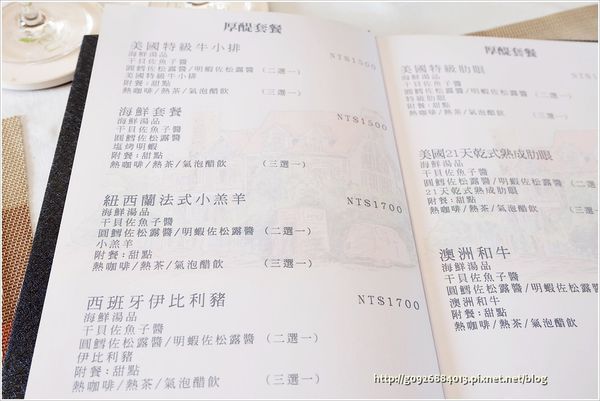 厚醍套餐
美國特級牛小排 NT$1500
海鮮湯品
干貝佐魚子醬
圓鱈佐松露醬/明蝦佐松露醬 (二選一)
美國特級牛小排
附餐:甜點
熱咖啡/熱茶/氣泡醋飲 (三選一)
海鮮套餐 NT$1500
海鮮湯品
干貝佐魚子醬
圓鱈佐松露醬
塩烤明蝦
附餐:甜點
熱咖啡/熱茶/氣泡醋飲 (三選一)
紐西蘭法式小羔羊 NT$1700
海鮮湯品
干貝佐魚子醬
圓鱈佐松露醬/明蝦佐松露醬 (二選一)
小羔羊
附餐:甜點
熱咖啡/熱茶/氣泡醋飲 (三選一)
西班牙伊比利豬 NT$1700
海鮮湯品
干貝佐魚子醬
圓鱈佐松露醬/明蝦佐松露醬 (二選一)
伊比利豬
附餐:甜點
熱咖啡/熱茶/氣泡醋飲 (三選一)
厚醍套餐
美國特級肋眼
海鮮湯品
干貝佐魚子醬
圓鱈佐松露醬/明蝦佐松露醬
特級肋眼
附餐:甜點
熱咖啡/熱茶/氣泡醋飲
美國21天乾式熟成肋眼
海鮮湯品
干貝佐魚子醬
圓鱈佐松露醬/明蝦佐松露醬 (二選
21天乾式熟成肋眼
附餐:甜點
熱咖啡/熱茶/氣泡醋飲 (三
澳洲和牛
海鮮湯品
干貝佐魚子醬
圓鱈佐松露醬/明蝦佐松露醬
澳洲和牛
附餐:甜點
熱咖啡/熱茶/氣泡醋飲
http://go925884013.pixnet.net/blog